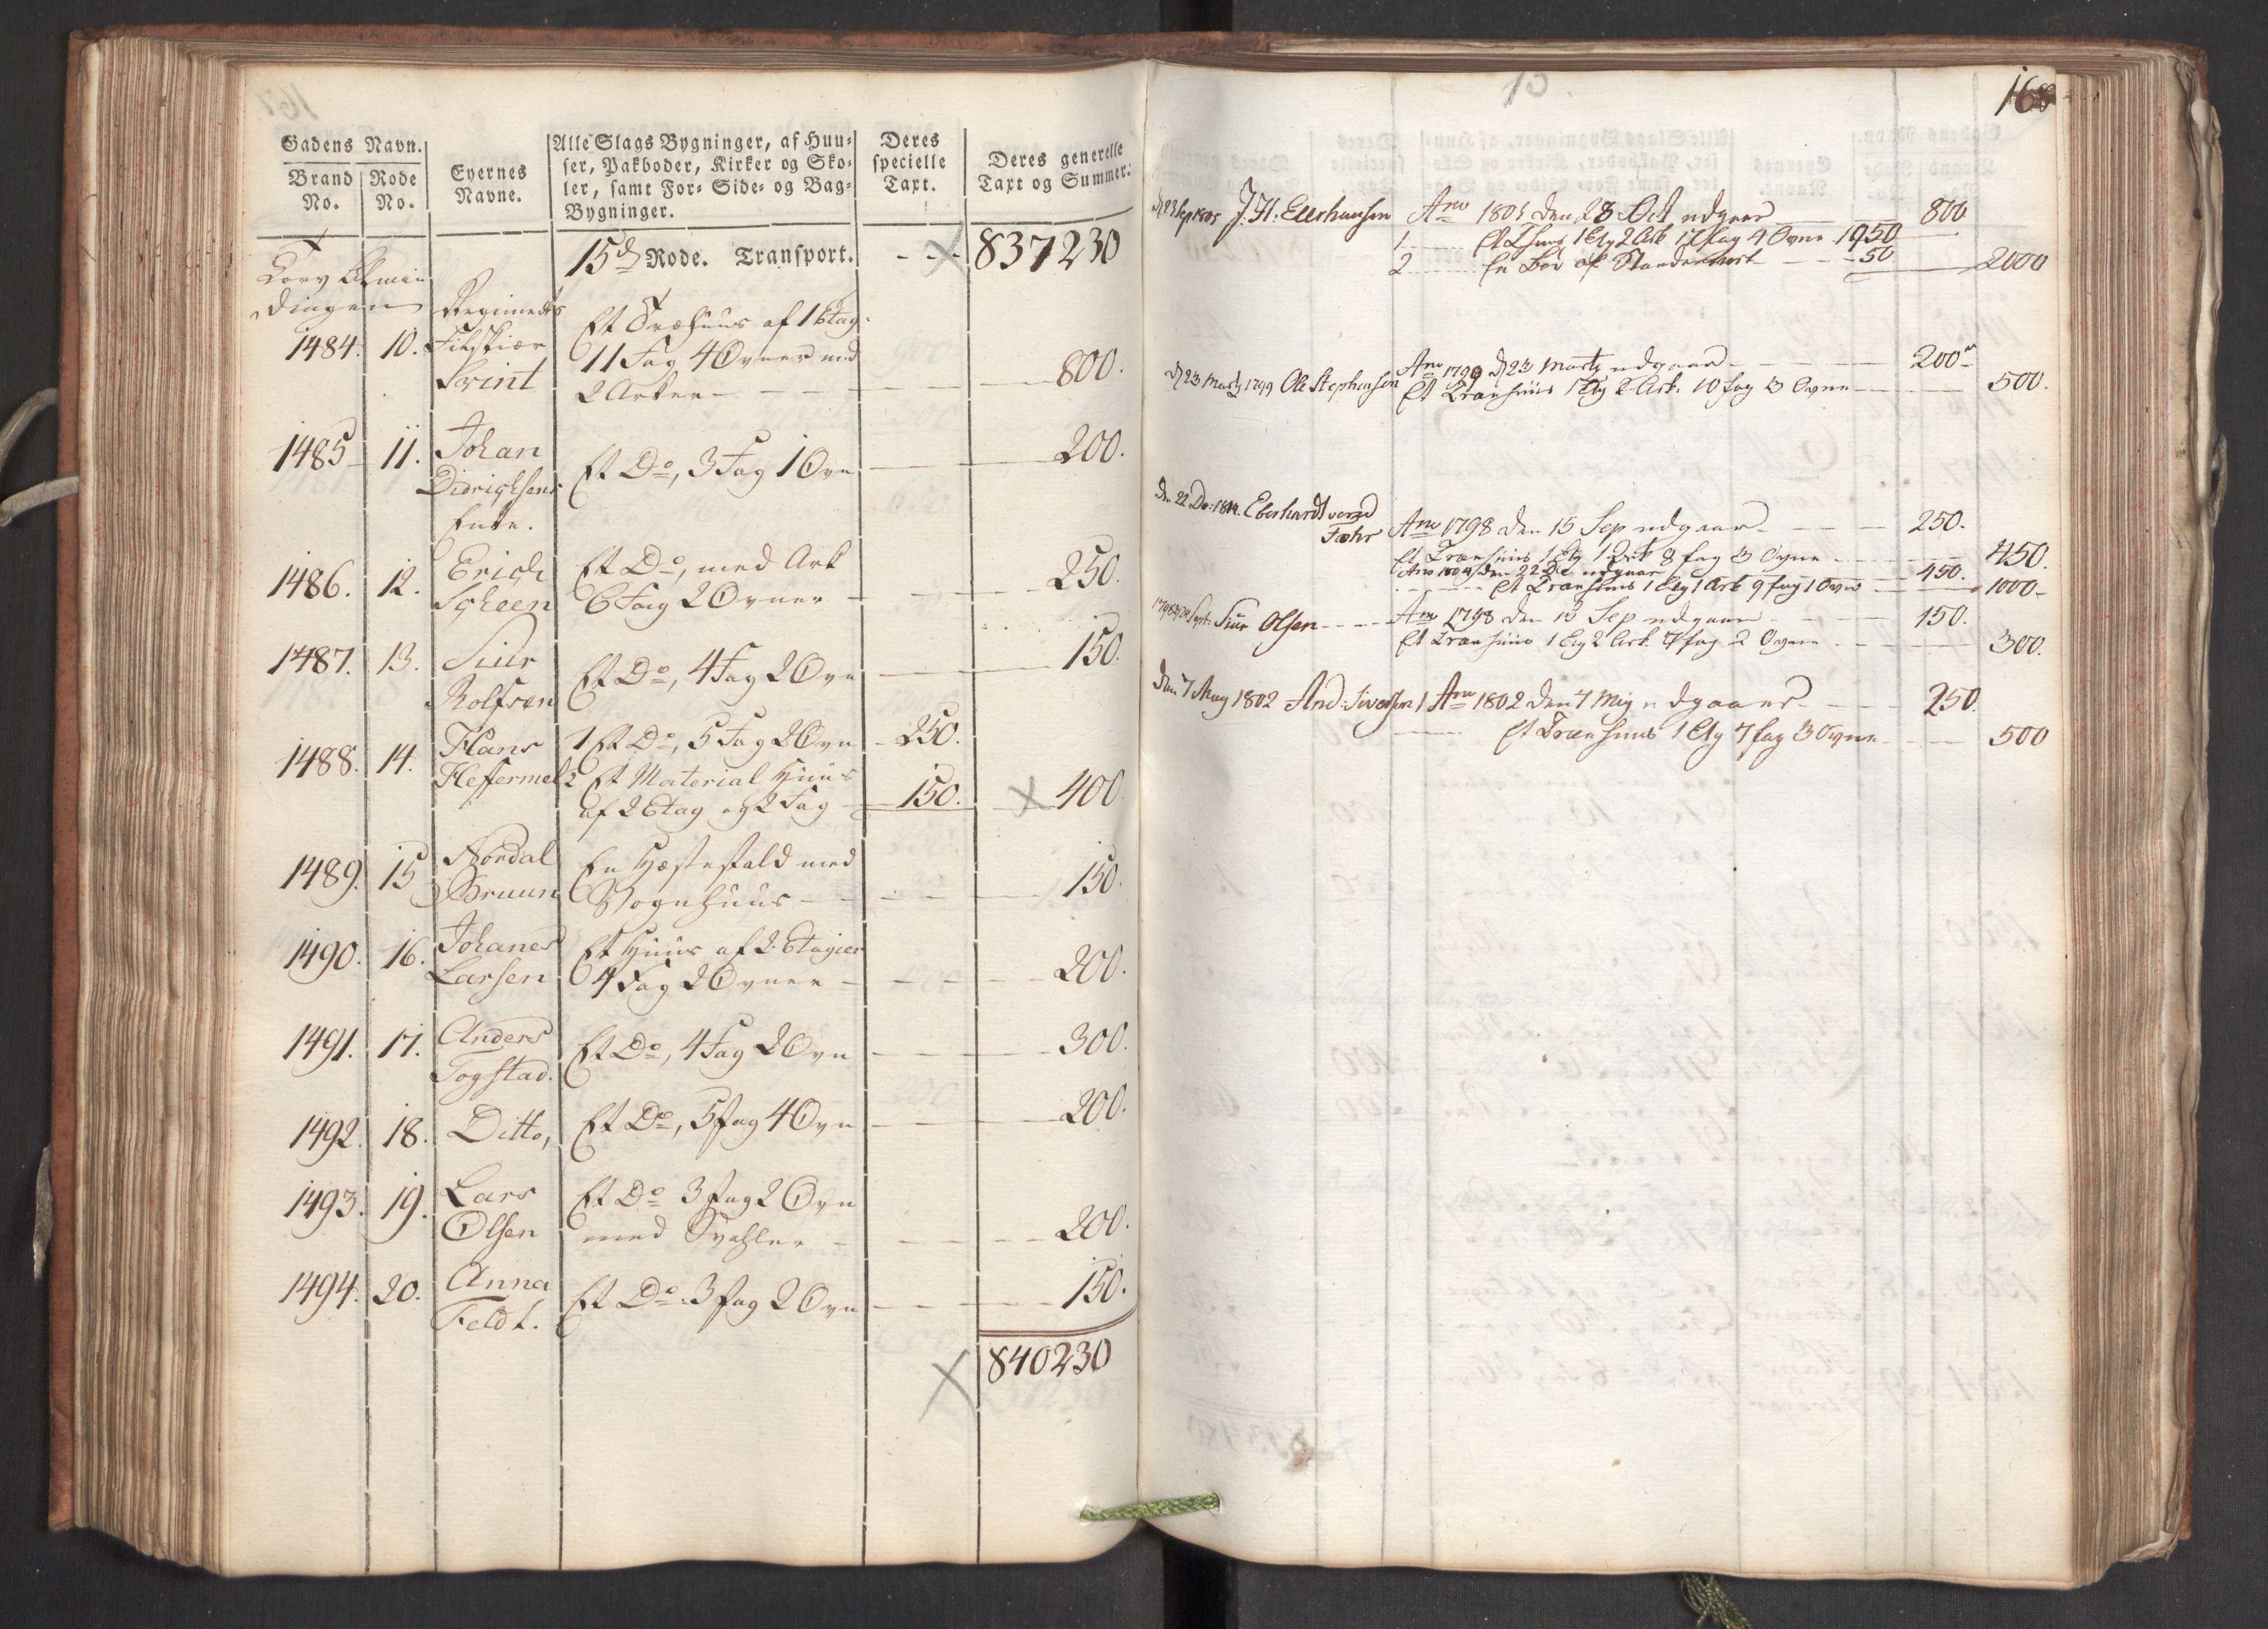 Gadens Navn.
Brand No.
Rode No.
Eyernes Navne.
Alle Slags Bygninger, af Huu=
ser, Pakboder, Kirker og Sko=
ler, samt For= Side= og Bag=
Bygninger.
Deres specielle Taxt.
Deres generelle Taxt og Summer.
15de Rode. Transport. - - 837230
Torv Almin
dingen
Regiments
1484. 10. Feltskiær Et Træhuus af 1 Etag:
11 Fag 4 Ovner med
Print 2 Arker - - - 800.
1485 11. Johan
Didrichsens Et Do, 3 Fag 1 Ovn 200.
Enke.
1486. 12. Erich Et Do, med Ark
Scheen 6 Fag 2 Ovner - 250.
1487. 13. Siur
Rolfsen Et Do, 4 Fag 2 Ovn 150.
1488. 14. Hans 1 Et Do, 5 Fag 2 Ovn - 250.
Heffermel 2 Et Material Huus
af 2 Etag og 2 Fag 150. 400.
1489. 15 Nordal En Hæstestald med
Bruun Vognhuus - - 150.
1490. 16. Johanes Et Huus af 2 Etagier
Larsen 4 Fag 2 Ovner - 200.
1491. 17. Anders
Togstad. Et Do, 4 Fag 2 Ovn 300.
1492. 18. Ditto, Et Do, 5 fag 4 Ovn 200.
1493. 19. Lars Et Do 3 fag 2 Ovn
Olsen med Svahler - 200.
1494. 20. Anna
Feldt. Et Do 3 fag 2 Ovn 150.
840230
15.
168
J. H. Ellerhusen Ano 1805 den 28 Oct udgaar 800
1 1 Etg 2 Ark 17 fag 4 Ovne 1950
2 En Bod af - - 50 2000
Ano 1799 d 23 Marty udgaar - 200
d 23 Marty 1799 Ole Stephensen Et Træehuus 1 Etg 2 Ark. 10 fag 3 Ovne 500.
den 22 De: 1804. Eberhardt
Fæhr Ano 1798 den 15 Sep udgaar - 250.
Et Træehuus 1 Etg 1 Ark 8 fag 3 Ovne 450.
Ano 1804 den 22 De udgaar 450.
Et Træehuus 1 Etg 1 Ark 9 fag 1 Ovn 1000-
Siur Olsen - - Ano 1798 den 15 Sep udgaar 150.
Et Træehuus 1 Etg 2 Ark. 7 fag 2 Ovne 300.
Den 7 May 1802 And: Siversen 1 Ano 1802 den 7 May udgaaer 250.
Et Træehuus 1 Etg 7 fag 3 Ovne 500